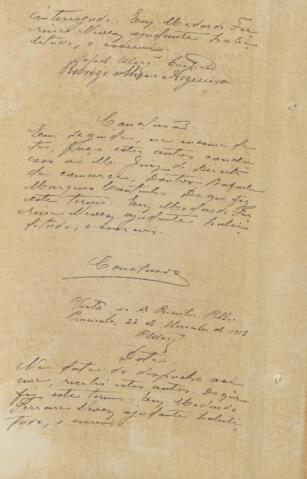 interrogado. Eu, Medardo Fer-
reira Neves, ajudante habili-
tado, o escrevi.
Rafael Marq. Cantinho
Rodrigo Alves Nogueira
Conclusão.
Em seguida, na mesma da-
ta, faço estes autos conclu-
sos ao M. Juiz de Direito
da comarca, Doutor Rafael
Marques Cantinho. Do que fiz
este termo. Eu, Medardo Fer-
reira Neves, ajudante habili-
tado, o escrevi.
Conclusos
Vista ao Dr. Promotor Publico.
22 de 1913
RMarq
Data
Na data do despacho aci-
ma, recebi estes autos. Do que
fiz este termo. Eu, Medardo
Ferreira Neves, ajudante habili-
tado, o escrevi.